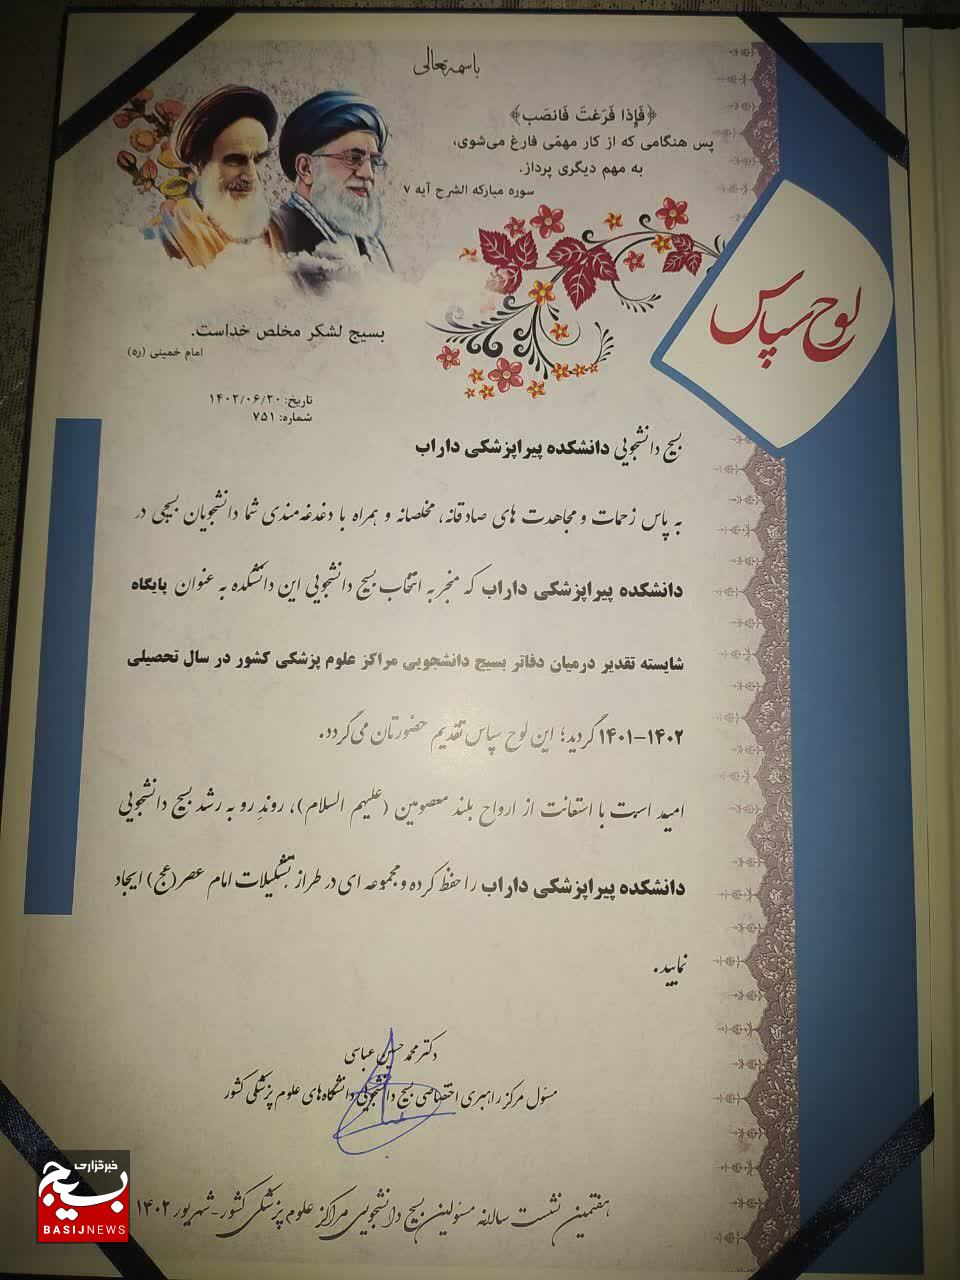 باسمه‌تعالی
﴿فَإِذا فَرَغتَ فَانصَب﴾
پس هنگامی که از کار مهمّی فارغ می‌شوی،
به مهم دیگری پرداز.
سوره مبارکه الشرح آیه ۷
لوح سپاس
بسیج لشکر مخلص خداست.
امام خمینی (ره)
تاریخ: ۱۴۰۲/۰۶/۲۰
شماره: ۷۵۱
بسیج دانشجویی دانشکده پیراپزشکی داراب
به پاس زحمات و مجاهدت های صادقانه، مخلصانه و همراه با دغدغه‌مندی شما دانشجویان بسیجی در
دانشکده پیراپزشکی داراب که منجر به انتخاب بسیج دانشجویی این دانشکده به عنوان پایگاه
شایسته تقدیر درمیان دفاتر بسیج دانشجویی مراکز علوم پزشکی کشور در سال تحصیلی
۱۴۰۲-۱۴۰۱ گردید؛ این لوح سپاس تقدیم حضورتان می‌گردد.
امید است با استعانت از ارواح بلند معصومین (علیهم السلام)، روندِ رو به رشد بسیج دانشجویی
دانشکده پیراپزشکی داراب را حفظ کرده و مجموعه ای در طراز تشکیلات امام عصر(عج) ایجاد
نمایید.
دکتر محمد حسین عباسی
مسئول مرکز راهبری اختصاصی بسیج دانشجویی دانشگاه‌های علوم پزشکی کشور
هفتمین نشست سالانه مسئولین بسیج دانشجویی مراکز علوم پزشکی کشور-شهریور ۱۴۰۲
خبرگزاری
بسیج
BASIJNEWS